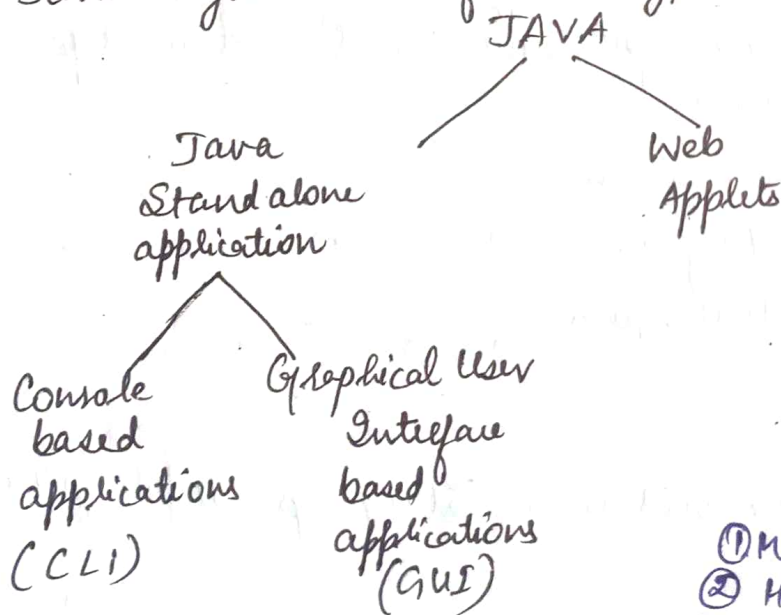 JAVA
Java
Stand alone
application
Web
Applets
Console
based
applications
(CLI)
Graphical User
Interface
based
applications
(GUI)
① M
② H